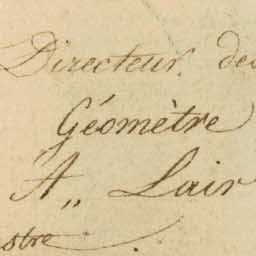 Directeur. des
Géomètre
A„ Lair
stre